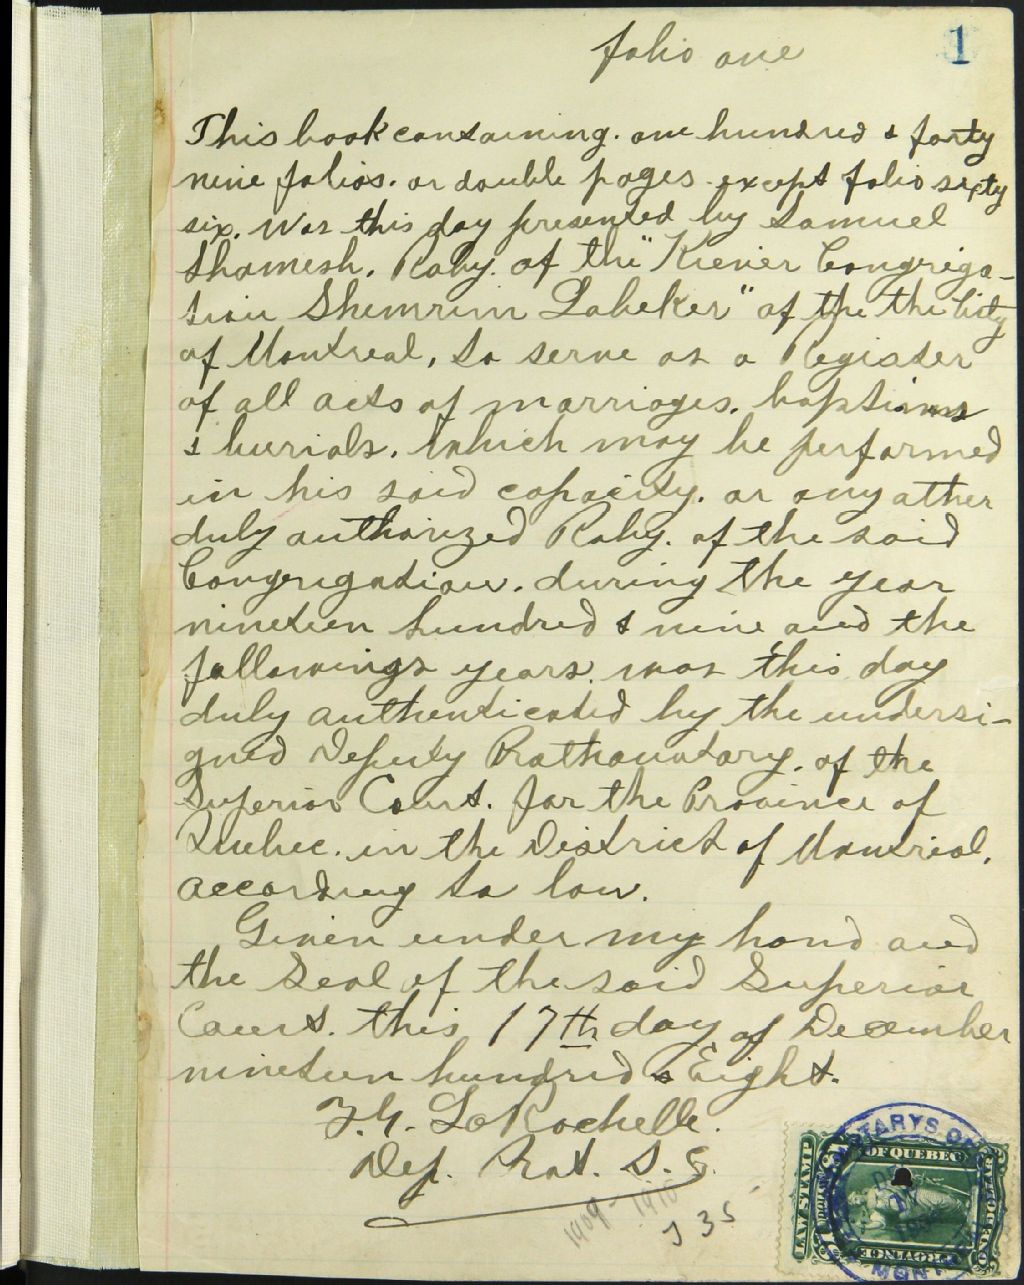 folio one
1
This book containing. one hundred & forty
nine folios. or double pages. except folio sixty
six. Was this day presented by Samuel
Shamesh. Raby. of the "Kiever Congrega-
tion Shemrim Labeker" of the the City
of Montreal, to serve as a Register
of all acts of marriages. baptisms
& burials. Which may be performed
in his said capacity. or any other
duly authorized Raby. of the said
Congregation. during the year
nineteen hundred & nine and the
followings years. was this day
duly authenticated by the undersi-
gned Deputy Prothonotary. of the
Superior Court. for the Province of
Quebec. in the District of Montreal.
according to law.
Given under my hand and
the Seal of the said Superior
Court. this 17th day of December
nineteen hundred & Eight.
LaRochelle.
Dep. Prot. S. C.
1909 - 1910
J 35
LAW STAMP
OF QUEBEC
PROVINCE
ONE
MONTREAL